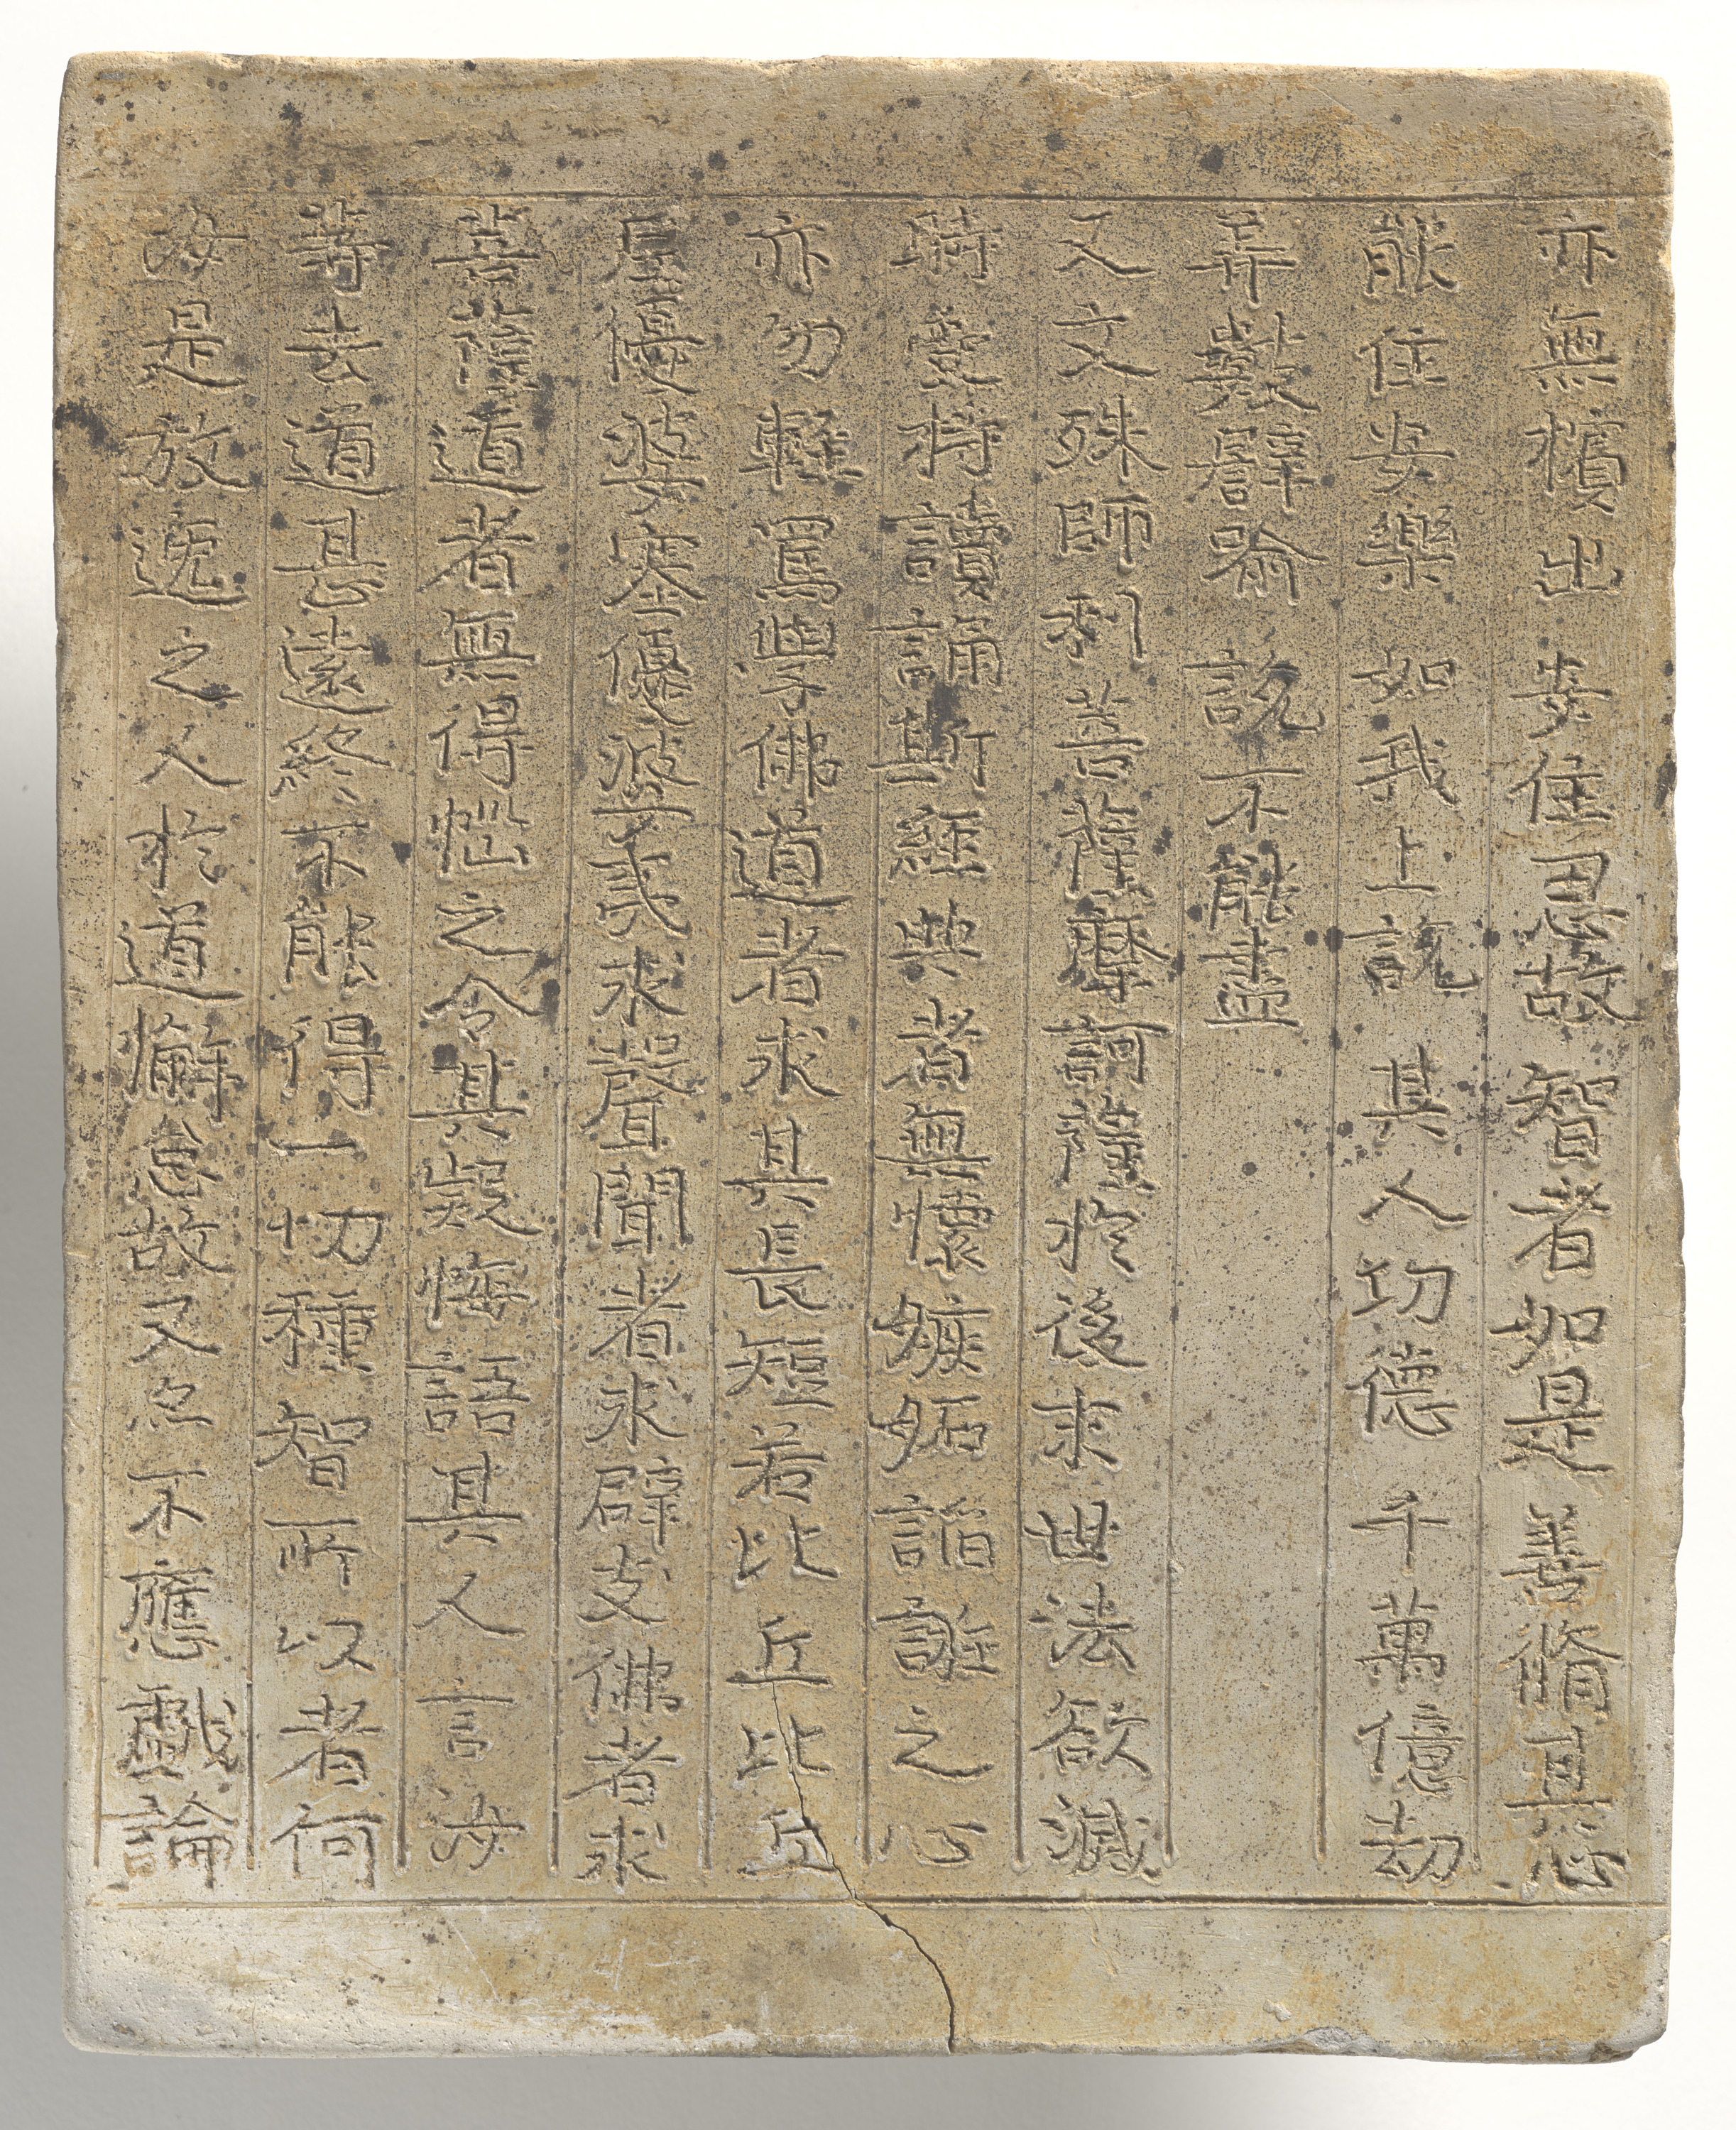 亦無擯出 安住忍故 智者如是 善脩其心
能住安樂 如我上説 其人功德 千萬億劫
弄數譬喻 説不能盡
又文殊師利菩薩摩訶薩於後末世法欲滅
時受持讀誦斯經典者無懷嫉妬諂誑之心
亦勿輕罵學佛道者求其長短若比丘比丘
尼優婆塞優婆夷求聲聞者求辟支佛者求
菩薩道者無得惱之令其疑悔語其人言汝
等去道甚遠終不能得一切種智所以者何
汝是放逸之人於道懈怠故又亦不應戲論